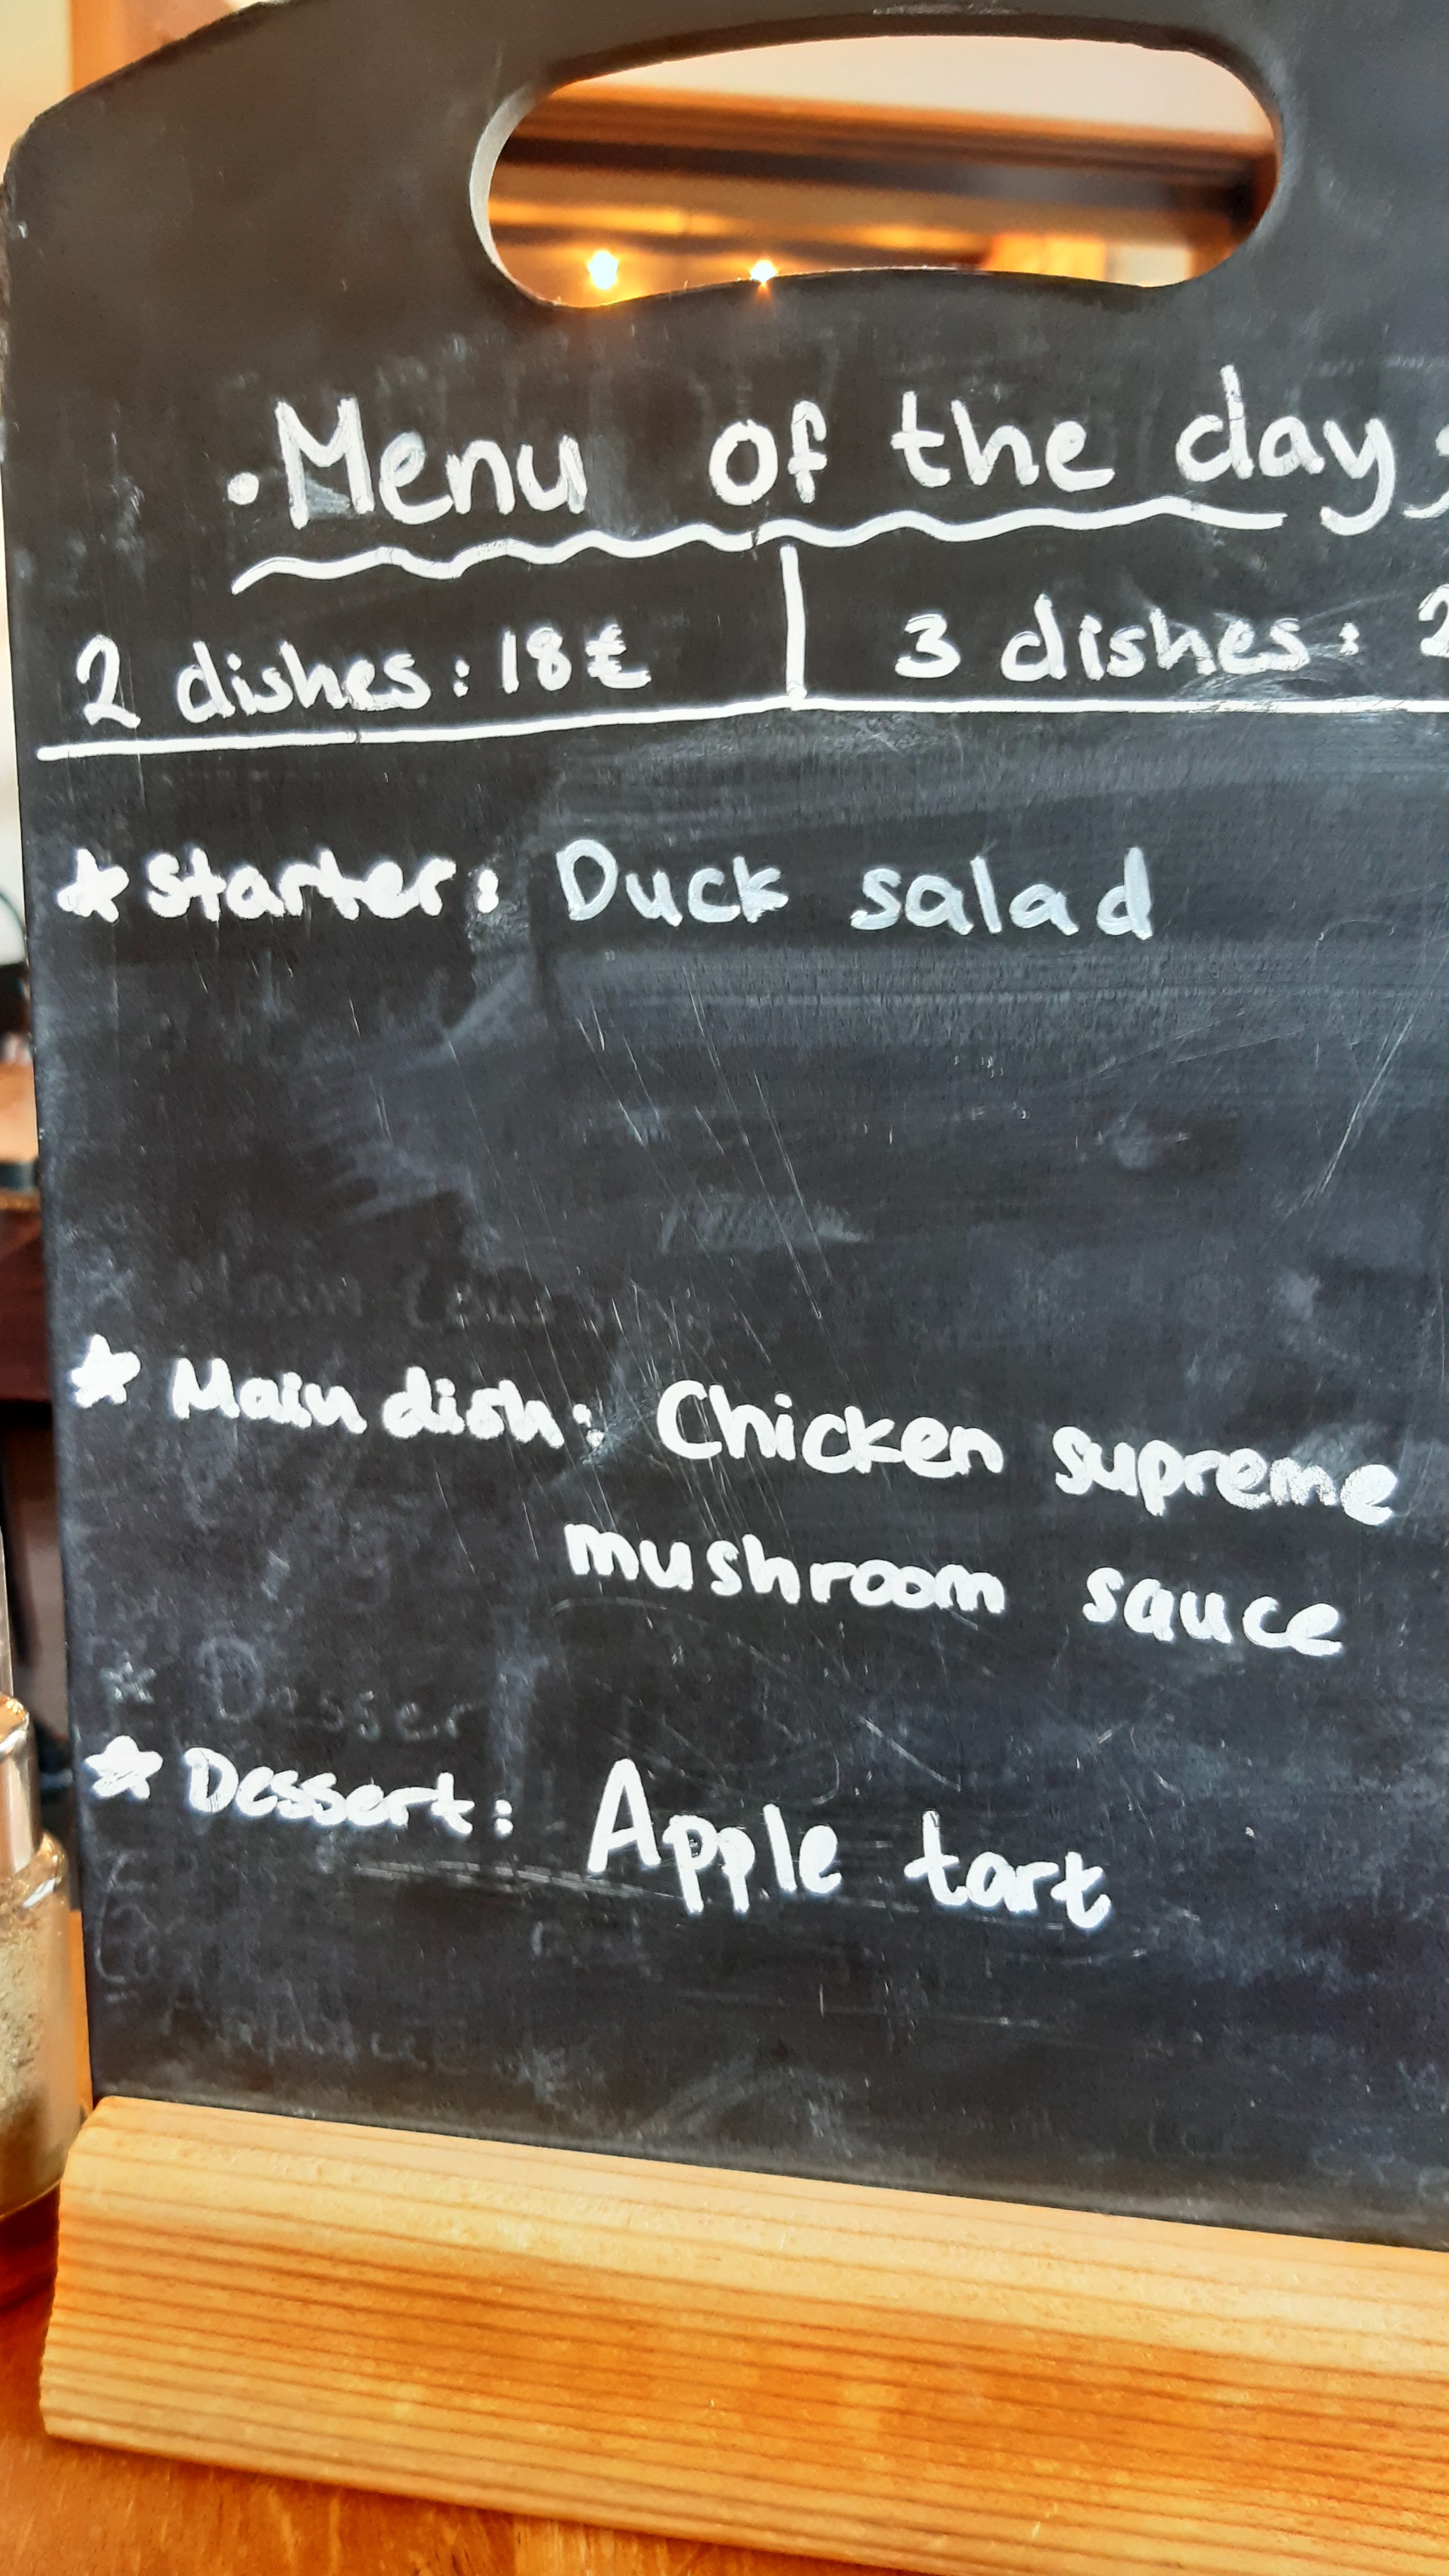 • Menu of the day
2 dishes: 18€ | 3 dishes: 2
★ Starter: Duck salad
★ Main dish: Chicken supreme
mushroom sauce
★ Dessert: Apple tart